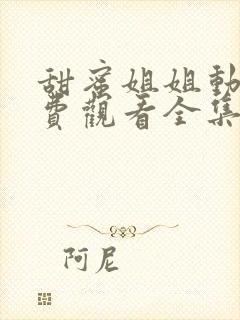 甜蜜姐姐動
費觀看全集
阿尼